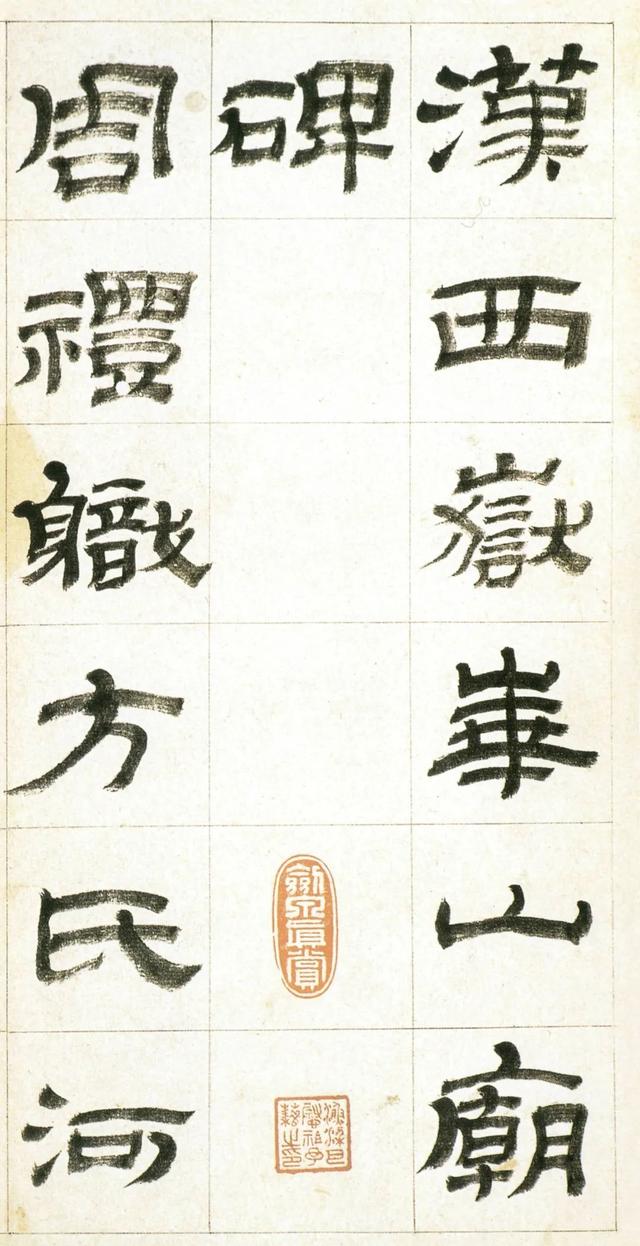 漢西嶽華山廟
碑
周禮職方氏河